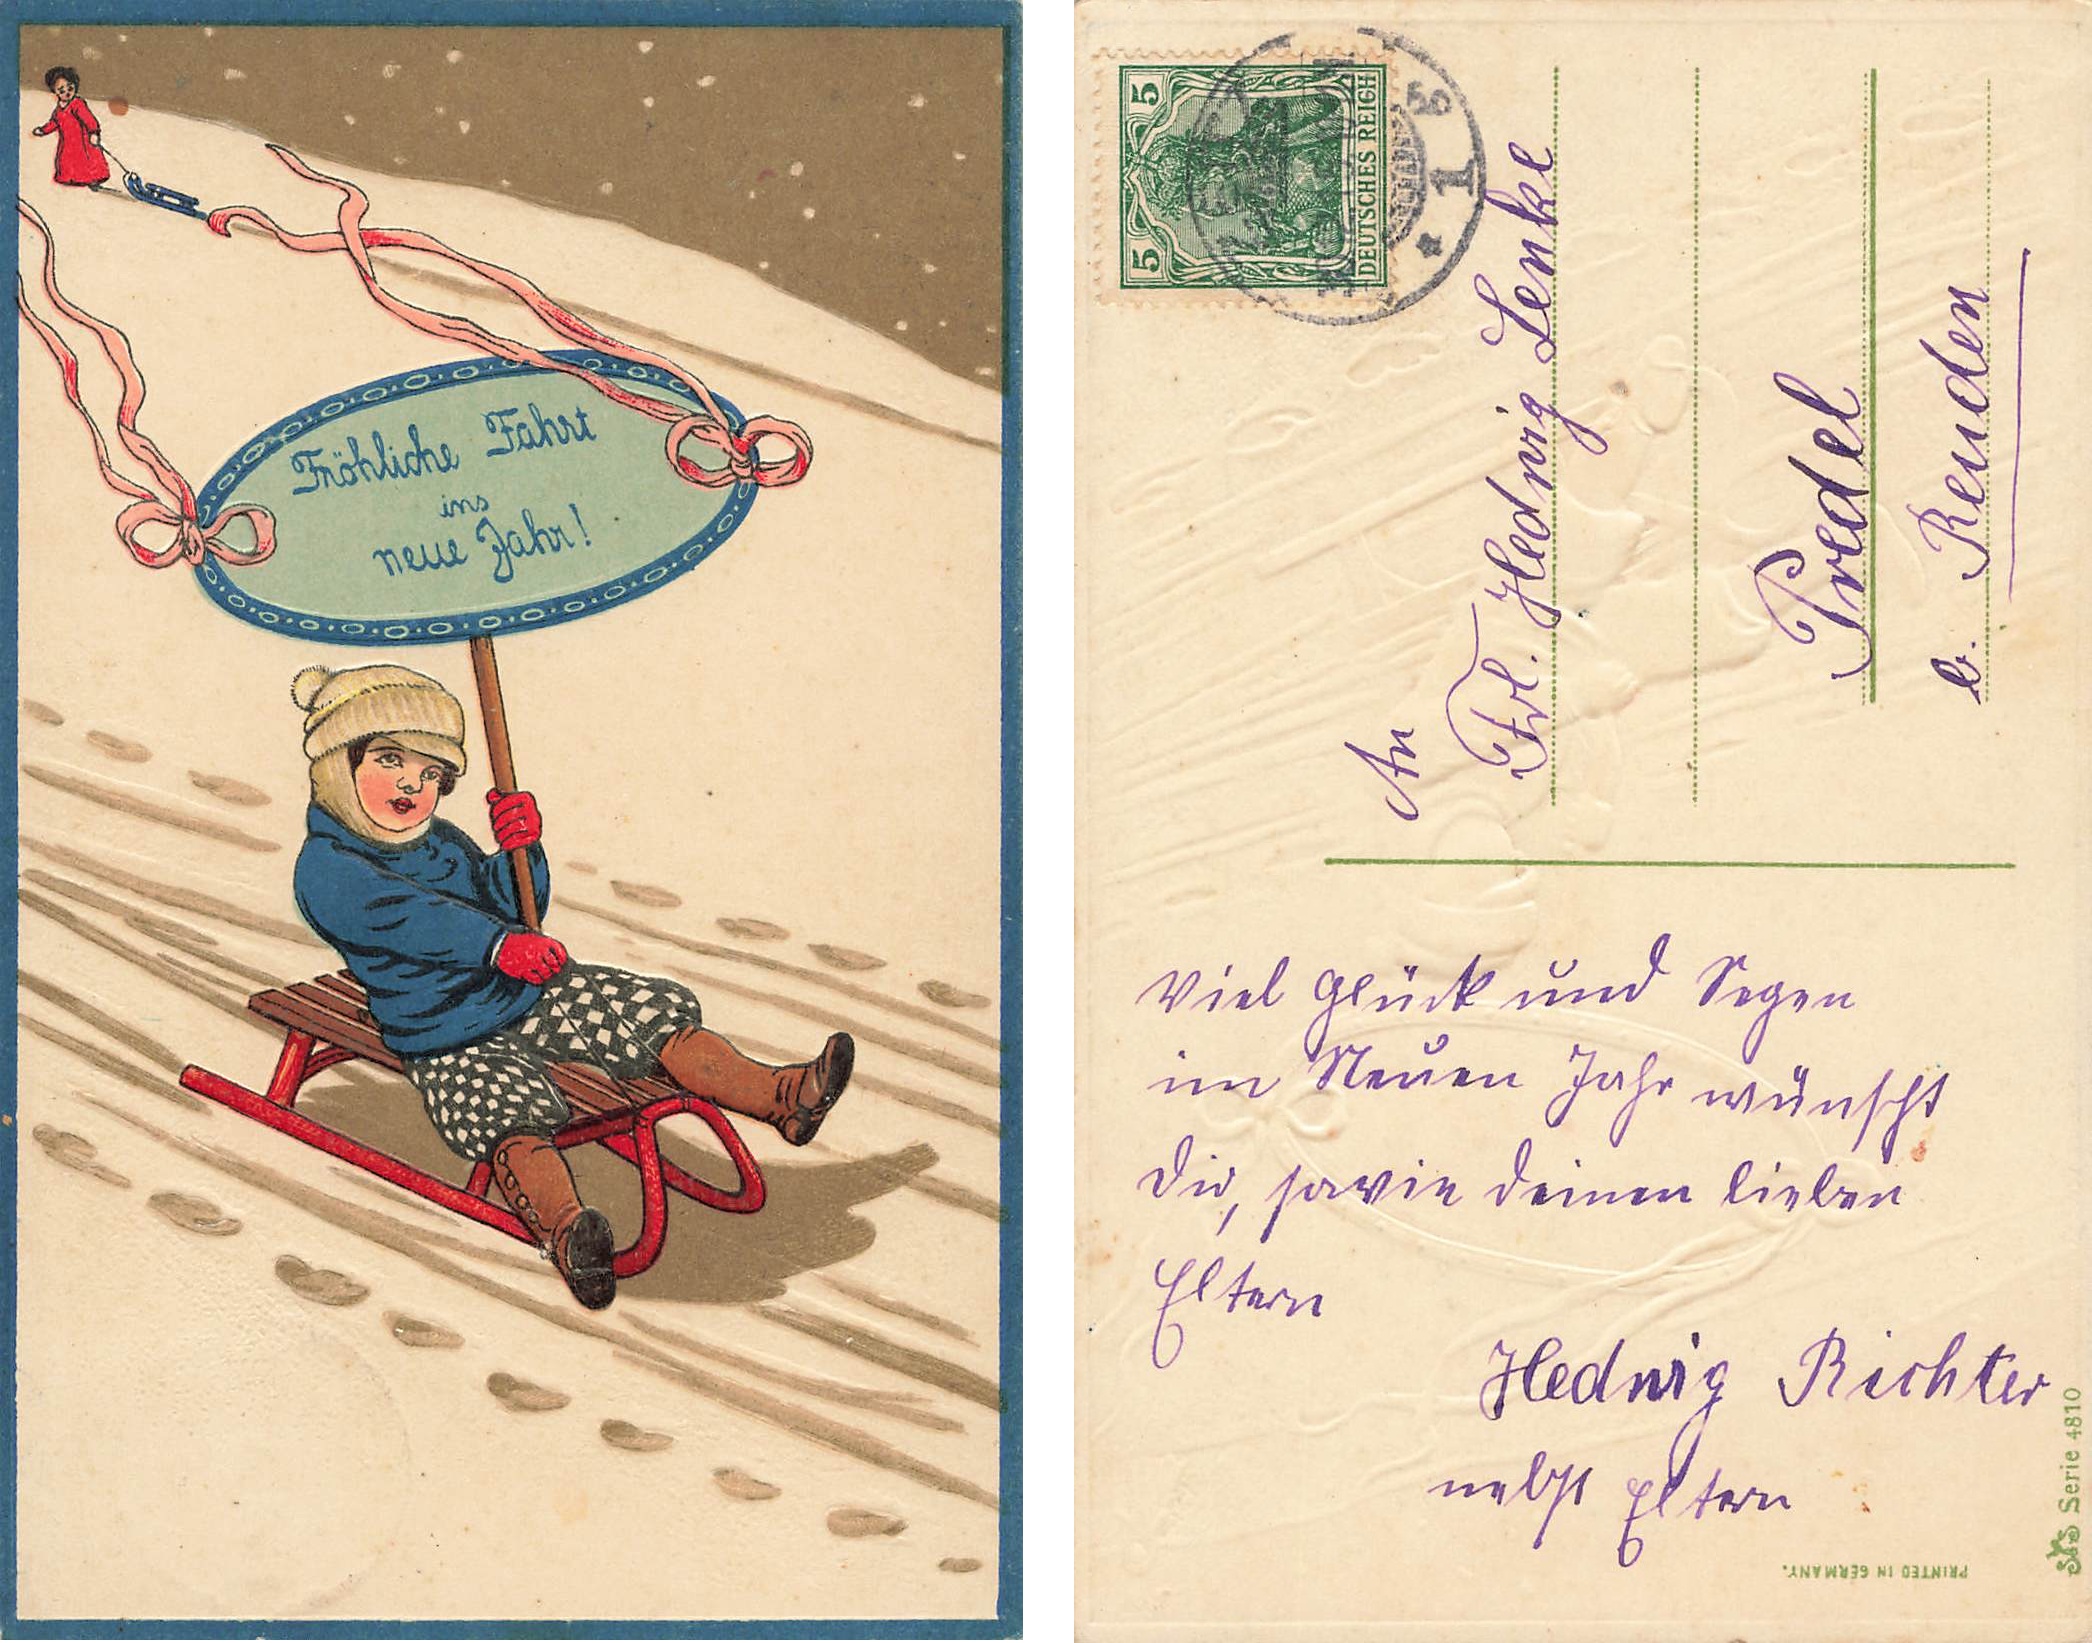 Fröhliche Fahrt
ins
neue Jahr!
5 5
DEUTSCHES REICH
1
An
Frl. Hedwig Lenke
Predel
b. Reuden
Viel Glück und Segen
im Neuen Jahr wünscht
Dir, sowie deinen lieben
Eltern
Hedwig Richter
nebst Eltern
Serie 4810
PRINTED IN GERMANY.